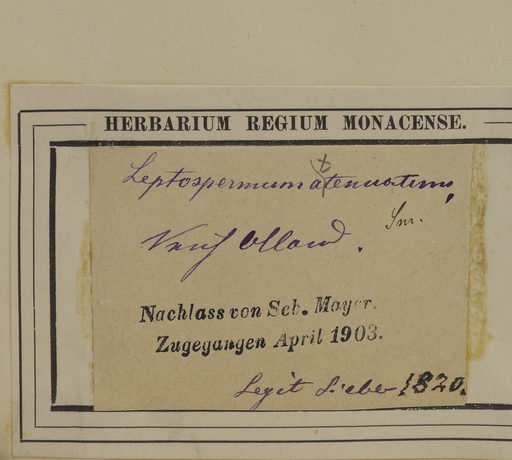 HERBARIUM REGIUM MONACENSE.
t
Leptospermum atenuatum,
Sm.
Neuh Olland.
Nachlass von Seb. Mayer.
Zugegangen April 1903.
Legit Sieber 1820.